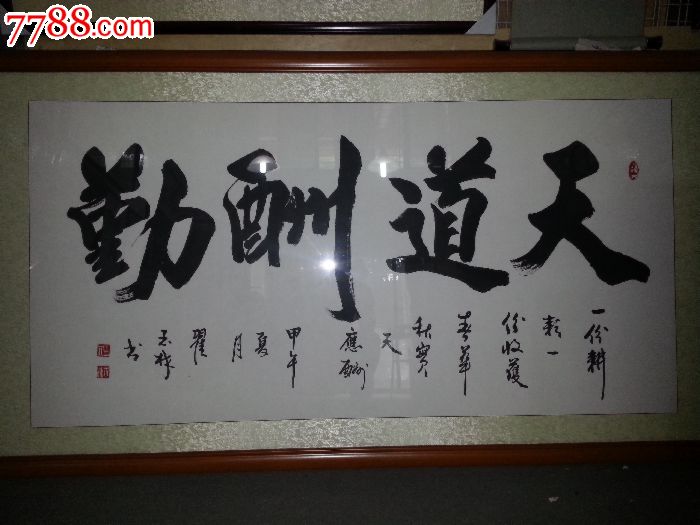 7788.com
天道酬勤
一份耕
耘一
份收获
春华
秋實
天
應酬
甲午
夏
月
翟
玉
書